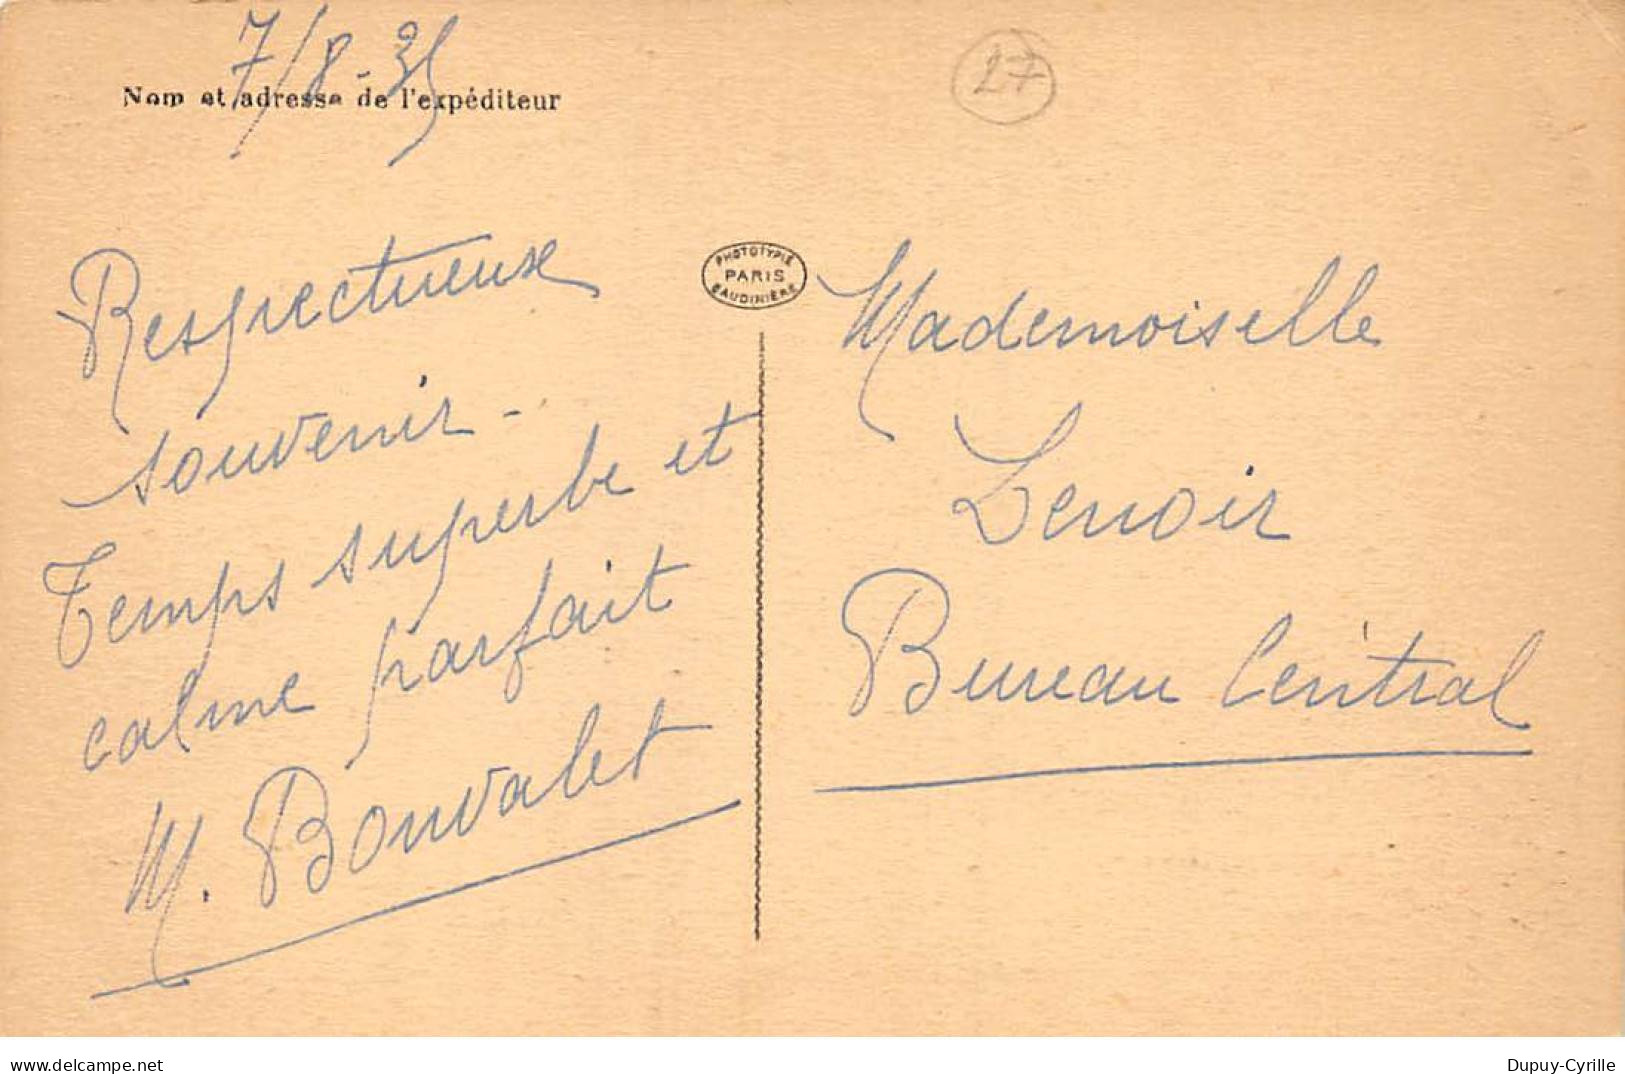 7/8-35
Nom et adresse de l'expéditeur
27
Respectueux
souvenir -
Temps superbe et
calme parfait
M. Bouvalet
PHOTOTYPIE
PARIS
BAUDINIÈRE
Mademoiselle
Lenoir
Bureau Central
delcampe.net
Dupuy-Cyrille